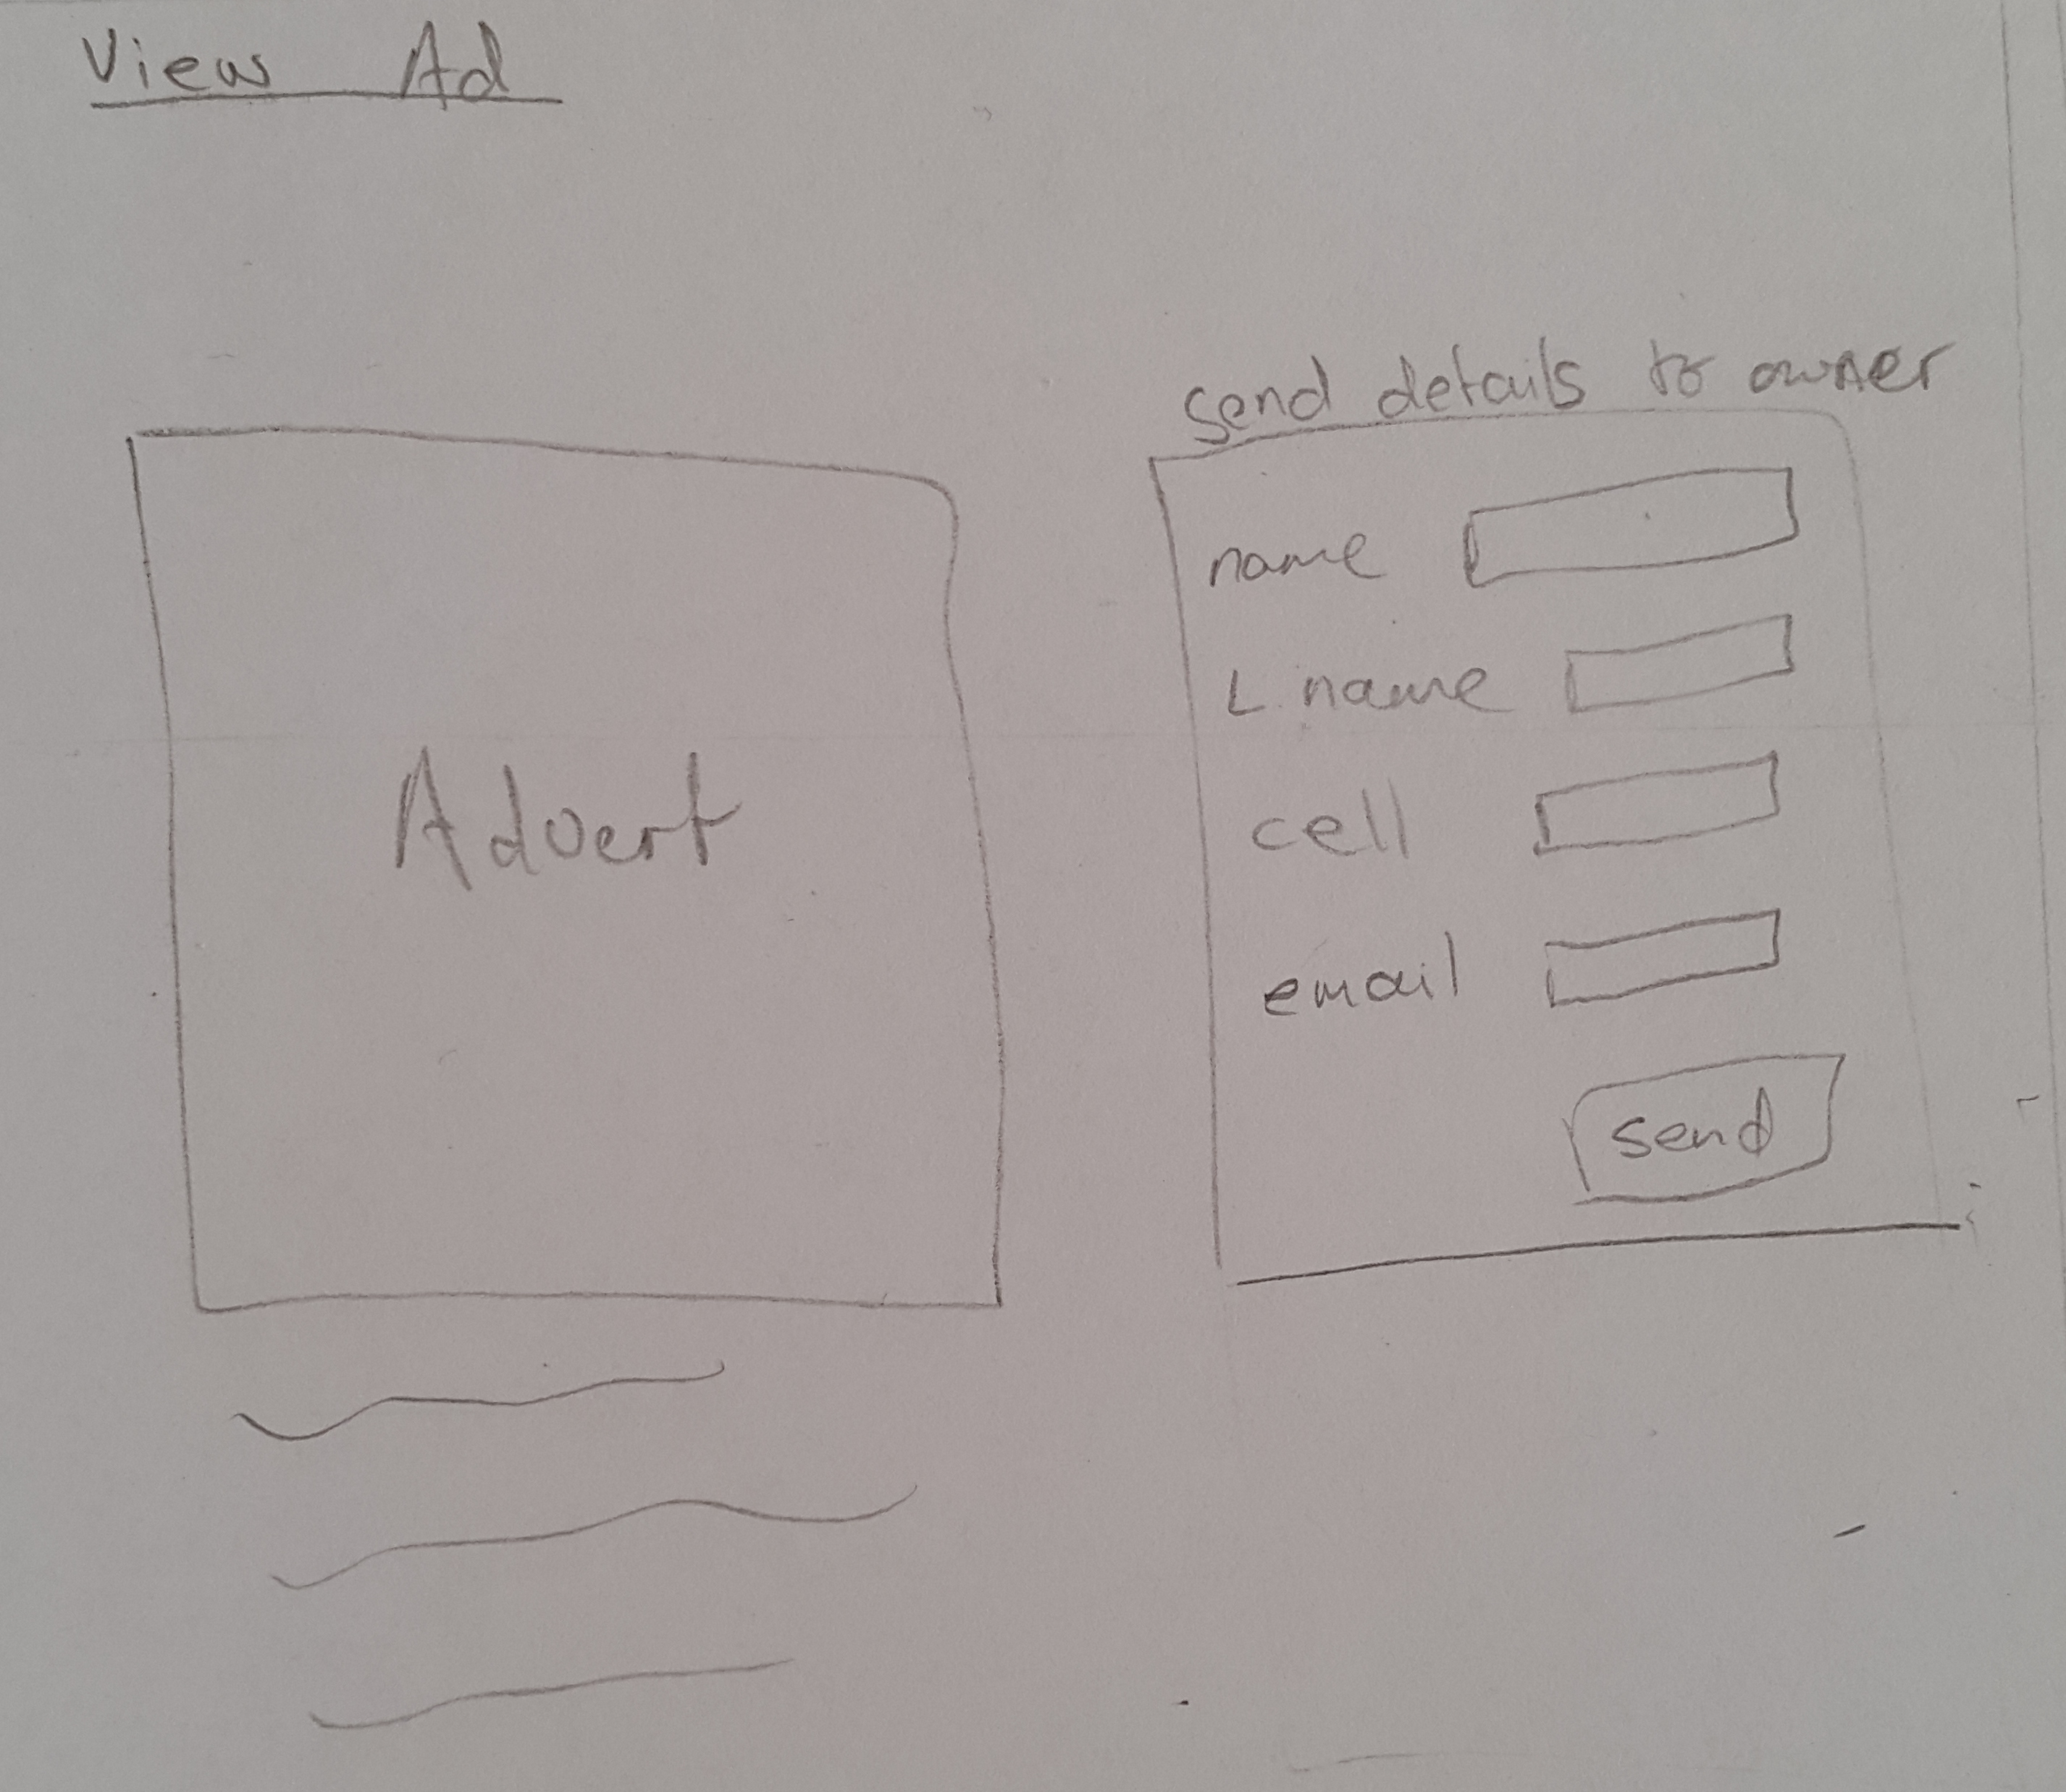 View Ad
Advert
send details to owner
name
L. name
cell
email
send